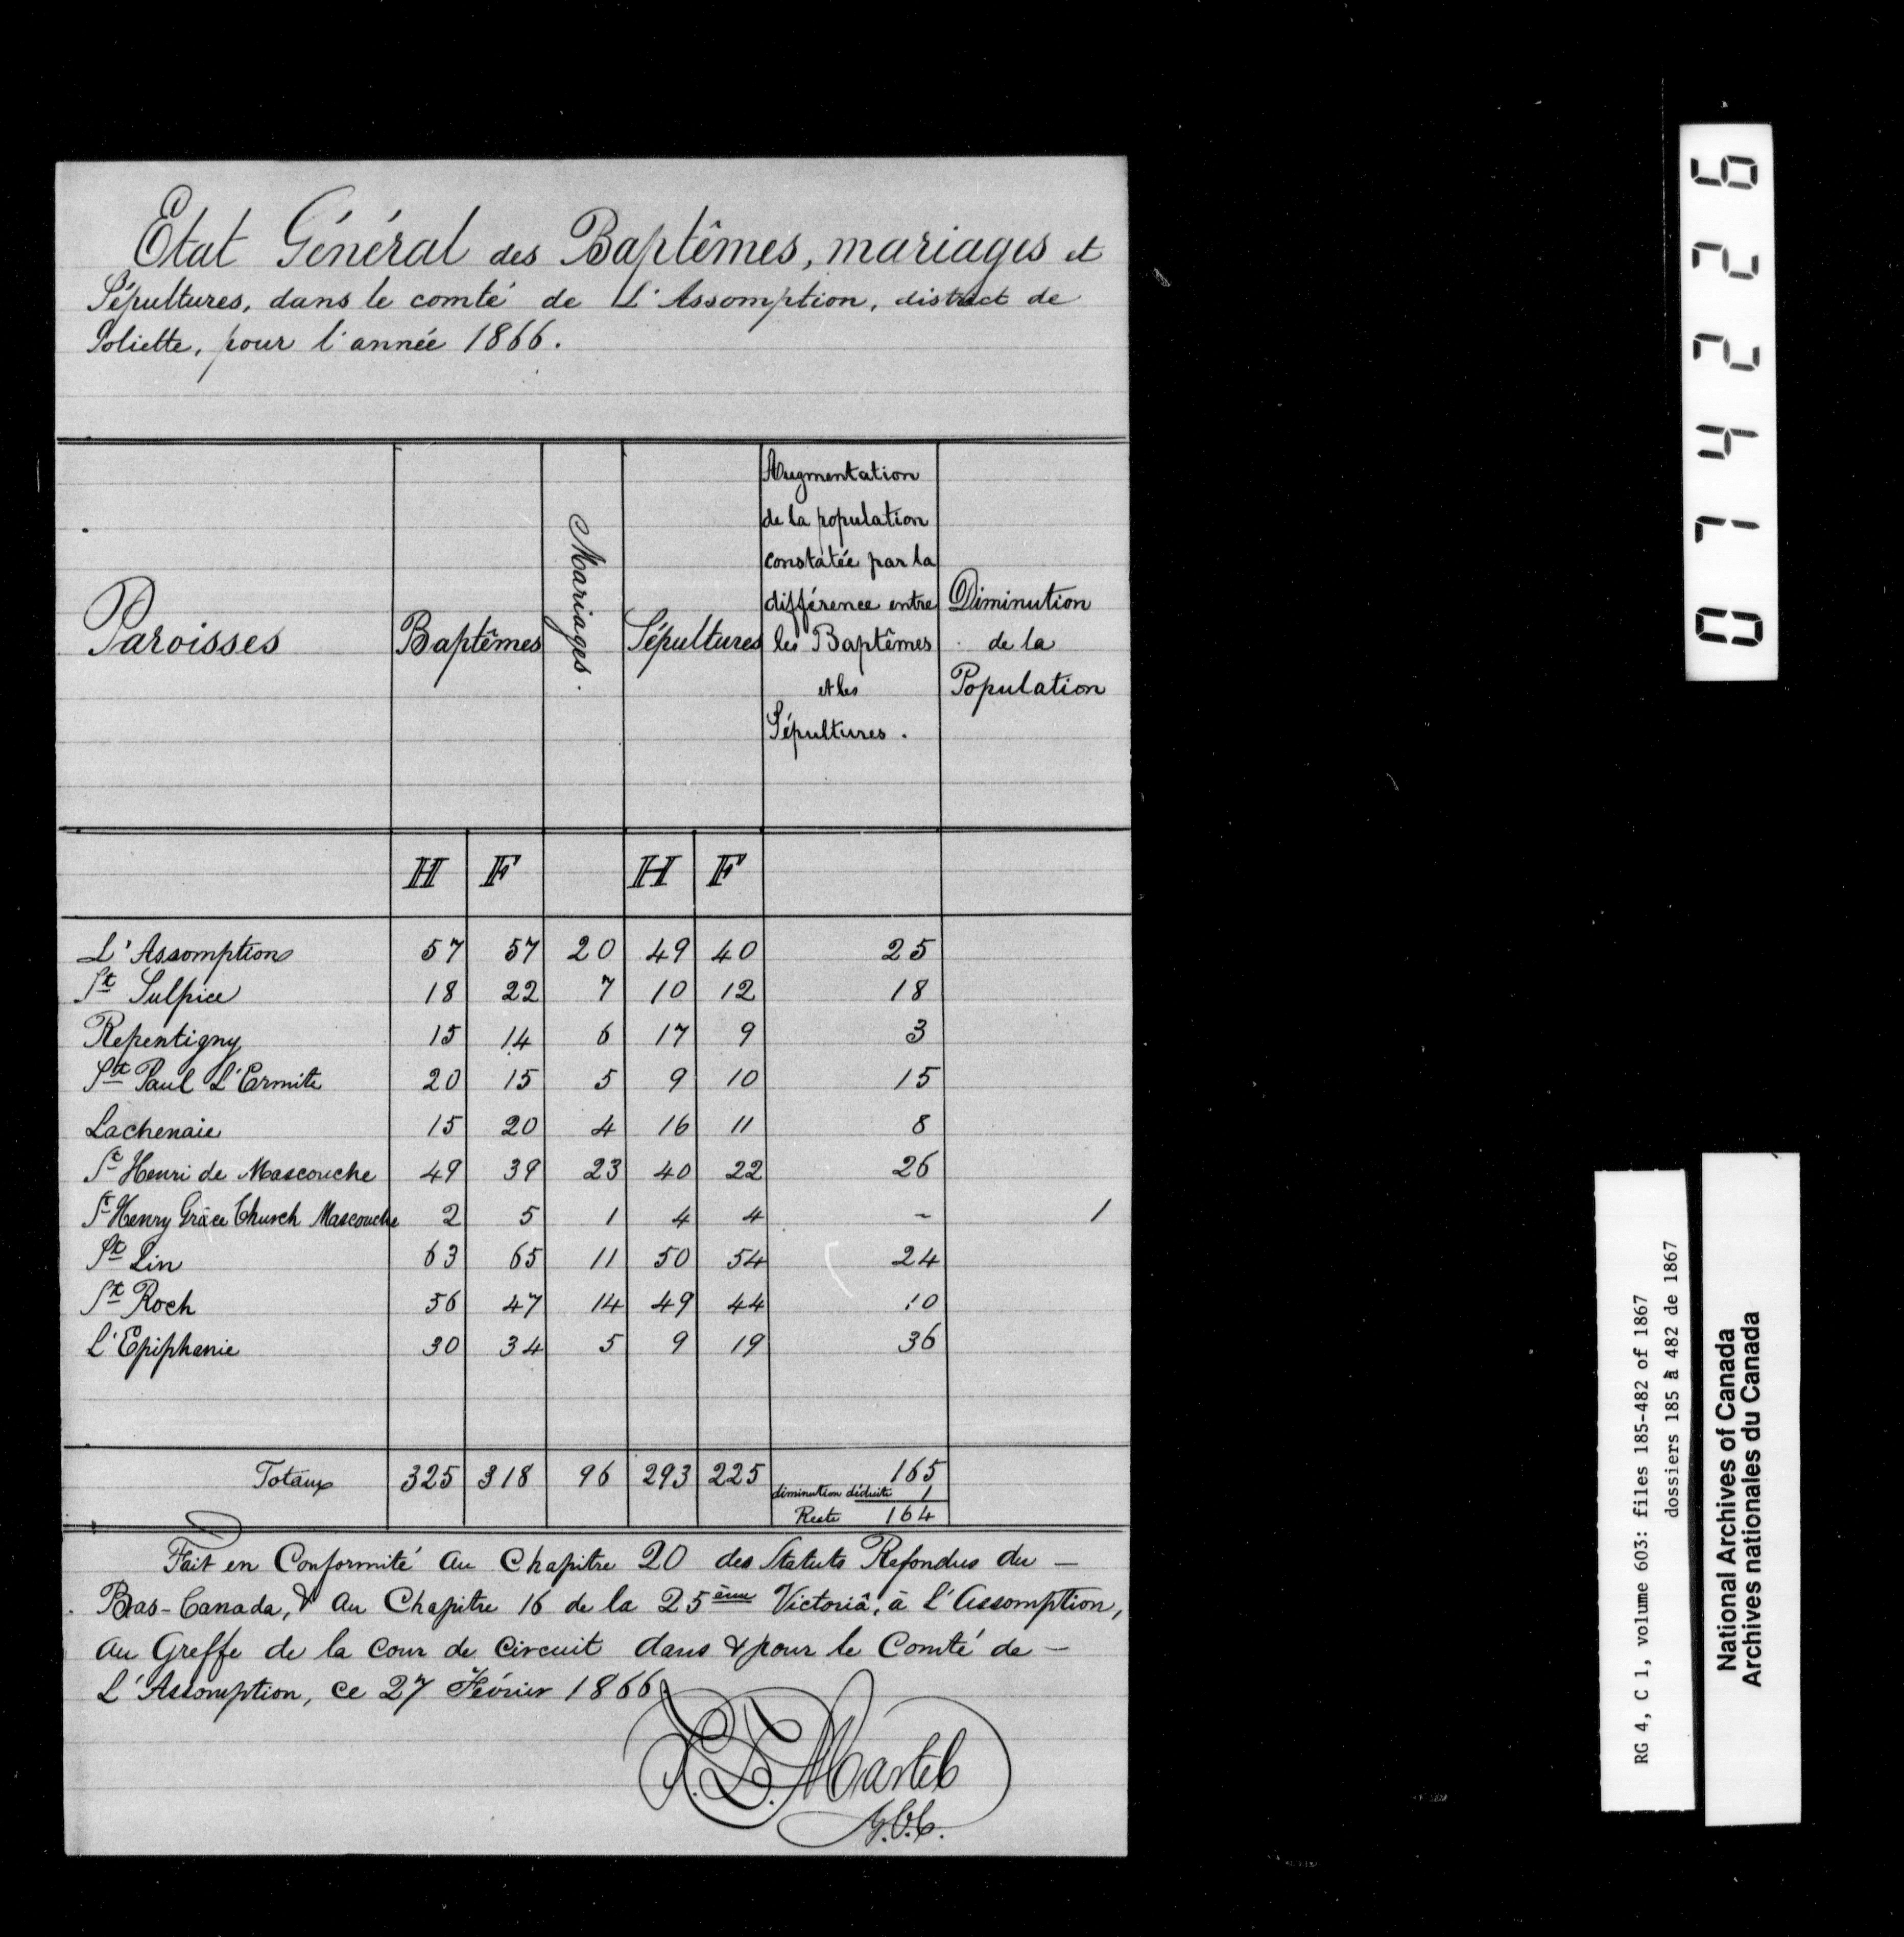 Etat Général des Baptêmes, mariages et
Sépultures, dans le comté de L'Assomption, district de
Joliette, pour l'année 1866.
Paroisses Baptêmes Mariages. Sépultures Augmentation de la population constatée par la différence entre les Baptêmes et les Sépultures. Diminution de la Population
H F H F
L'Assomption 57 57 20 49 40 25
St Sulpice 18 22 7 10 12 18
Repentigny 15 14 6 17 9 3
St Paul L'Ermite 20 15 5 9 10 15
Lachenaie 15 20 4 16 11 8
St Henri de Mascouche 49 39 23 40 22 26
St Henry Grâce Church Mascouche 2 5 1 4 4 ~ 1
St Lin 63 65 11 50 54 24
St Roch 56 47 14 49 44 10
L'Epiphanie 30 34 5 9 19 36
Totaux 325 318 96 293 225 165
diminution déduite 1
Reste 164
Fait en Conformité au Chapitre 20 des Statuts Refondus du —
Bas-Canada, & au Chapitre 16 de la 25ème Victoriâ, à L'Assomption,
au Greffe de la Cour de Circuit dans & pour le Comté de —
L'Assomption, ce 27 Février 1866.
Martel
G.C.C.
074226
RG 4, C 1, volume 603: files 185-482 of 1867
dossiers 185 à 482 de 1867
National Archives of Canada
Archives nationales du Canada